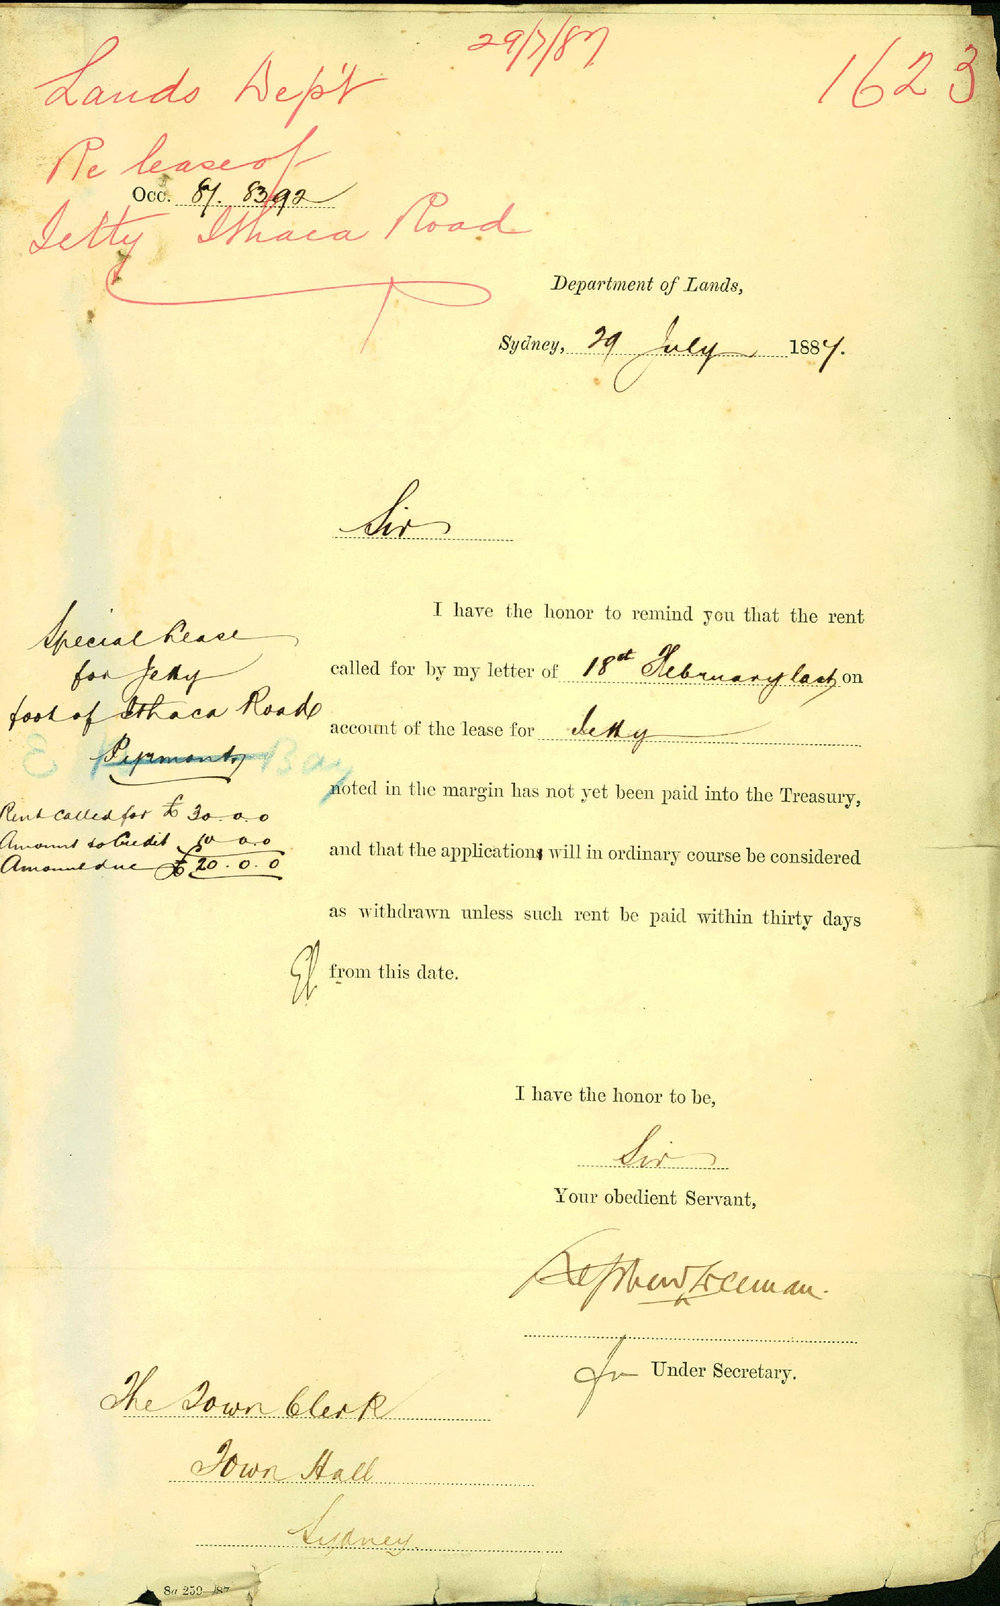 29/7/87
1623
Lands Dep't
Re lease of
Occ. 87. 8392
Jetty Ithaca Road
Department of Lands,
Sydney, 29 July 1887.
Sir
I have the honor to remind you that the rent
called for by my letter of 18th February last on
account of the lease for Jetty
noted in the margin has not yet been paid into the Treasury,
and that the application will in ordinary course be considered
as withdrawn unless such rent be paid within thirty days
from this date.
Special Lease
for Jetty
foot of Ithaca Road
Pyrmont
E Bay
Rent called for £ 30.0.0
Amount to Credit 10 0.0
Amount due £ 20.0.0
I have the honor to be,
Sir
Your obedient Servant,
Stephen Freeman.
for Under Secretary.
The Town Clerk
Town Hall
Sydney.
8a 259—87